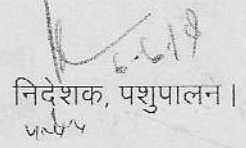 6-6-19
निदेशक, पशुपालन।